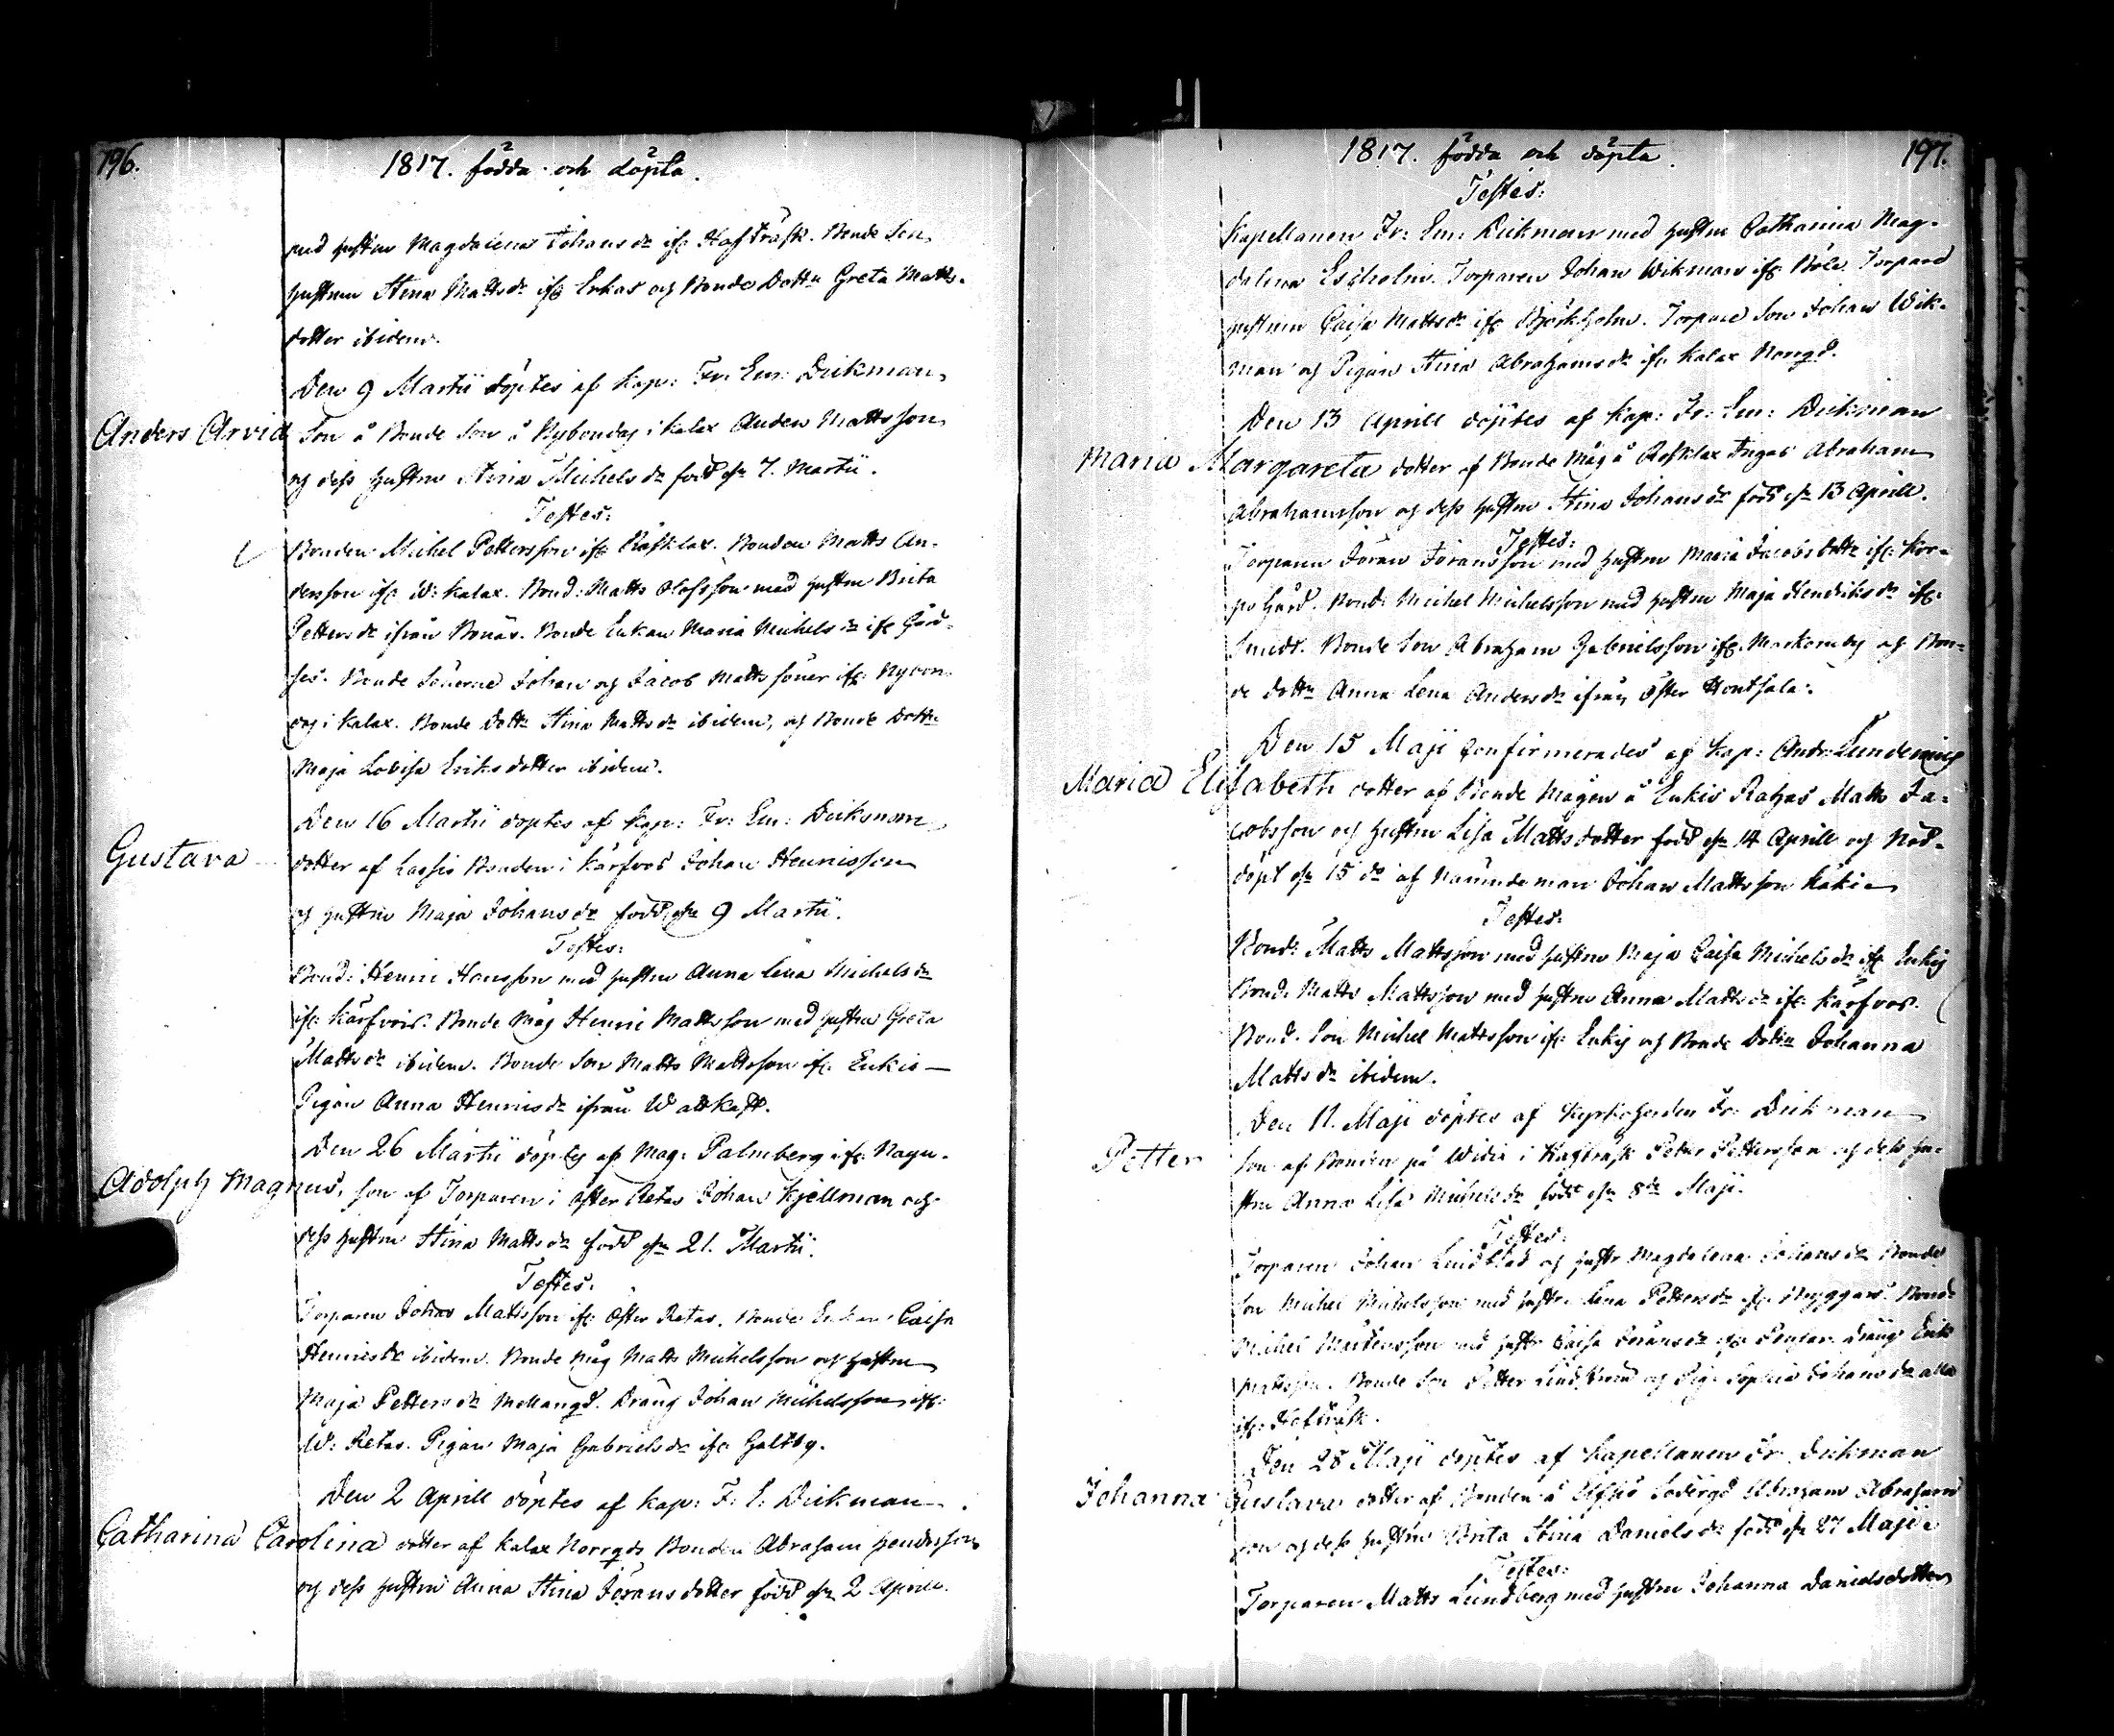 196.
1817. födda och döpta.
med hustrun Magdalena Johans dr ifr: Hafträsk. Bonde Son
hustrun Stina Matts dr ifr Erkas og Bonde Dottn Greta Matts-
dotter ibidem.
Den 9 Martii döptes af Kap: Fr: Em: Dickman,
Anders Arvid Son å Bonde Son å Nybondas i Kalax Anders Mattsson
og dess hustru Stina Michels dr född dn 7. Martii.
Testes:
Bonden Michel Pettersson ifr Räfsklax. Bonden Matts An-
dersson ifr W: Kalax. Bond: Matts Olofsson med hustru Brita
Petters dr ifrån Bonäs. Bonde Enkan Maria Michels dr ifr Gård-
ses. Bonde Sönerne Johan og Jacob Matts söner ifr: Nybon-
das i Kalax. Bonde Dottr Stina Matts dr ibidem, og Bonde Dottr
Maja Lovisa Eriks dotter ibidem.
Den 16 Martii döptes af Kap: Fr: Em: Dickman
Gustava dotter af Lassis Bonden i Kärfvos Johan Hennisson
og hustru Maja Johans dr född dn 9 Martii.
Testes:
Bond: Henric Hansson med hustru Anna Lena Michels dr
ifr: Kärfvois. Bonde Måg Henric Mattsson med hustru Greta
Matts dr ibidem. Bonde Son Matts Mattsson ifr. Enkis
Pigan Anna Hennis dr ifrån Wattkast.
Den 26 Martii döptes af Mag: Palmberg ifr: Nagu.
Adolph Magnus, son af Torparen i Öster Retas Johan Kjellman och
dess hustru Stina Matts dr född dn 21. Martii.
Testes:
Torparen Johan Mattsson ifr Öster Retas. Bonde Enkan Caisa
Hennis dr ibidem. Bonde Måg Matts Michelsson och hustru
Maja Petters dr Mellangd. Dräng Johan Michelsson ifr:
W: Retas. Pigan Maja Gabriels dr ifr Galtby.
Den 2 Aprill döptes af Kap: F: E: Dickman
Catharina Carolina dotter af Kalax Norrgds Bonden Abraham Hendrsson
og dess hustru Anna Stina Jörans dotter född dn 2 Aprill.
1817. födda och döpta. 197.
Testes:
Kapellanen Fr: Em: Dickman med hustru Catharina Mag-
dalena Esholm. Torparen Johan Wikman ifr Böle. Torpare
hustrun Caisa Matts dr ifr Björkholm. Torpare Son Johan Wik-
man og Pigan Stina Abrahams dr ifr Kalax Norrgd.
Den 13 Aprill döptes af Kap: Fr: Em: Dickman
Maria Margareta dotter af Bonde Måg å Rofsklax Ingas Abraham
Abrahamsson og dess hustru Stina Johans dr född dn 13 Aprill.
Testes:
Torparen Jöran Joransson med hustru Maria Jacobs dottr ifr: Kor-
po Gård. Bond: Michel Michelsson med hustru Maja Hendriks dr ifr:
Smeds. Bonde Son Abraham Gabrielsson ifr: Markomby og Bon-
de dottr Anna Lena Anders dr ifrån Öster Hontsala:
Den 15 Maji Confirmerades af Kap: Andr: Lundening
Maria Elisabeth dotter af Bonde Mågen å Enkis Matts Ja-
cobsson og hustru Lisa Matts dotter född dn 14 Aprill og Nöd-
döpt dn 15 do af Nämndeman Johan Mattsson
Testes:
Bond: Matts Mattsson med hustru Maja Caisa Michels dr ifr Enkis
Bond: Matts Mattsson med hustru Anna Matts dr ifr: Kärfvos.
Bond: Son Michel Mattsson ifr: Enkis og Bonde Dottr Johanna
Matts dr ibidem.
Den 11. Maji döptes af Kyrkoherden Fr: Dickman
Petter son af Bonden på Widis i Hafträsk Petter Pettersson og dess hu-
stru Anna Lisa Michels dr född dn 8de Maji.
Testes:
Torparen Johan Lindblad og hustr Magdalena Johans dr Bonde
Son Michel Michelsson med hustr: Lena Petters dr ifr: Bryggars. Bond
Michel Mårtensson med hustr Caisa Jörans dr ifr Dräng Erik
Mattsson. Bonde Son Petter Lindström og Pig: Sophia Johans dr alla
ifr: Hafträsk.
Den 28 Maji döptes af Kapellanen Fr: Dickman
Johanna Gustava dotter af Bonden å Elfsjö Södergd Abraham Abrahams
son og dess hustru Brita Stina Daniels dr född dn 27 Maji
Testes:
Torparen Matts Lundberg med hustru Johanna Danielsdotter